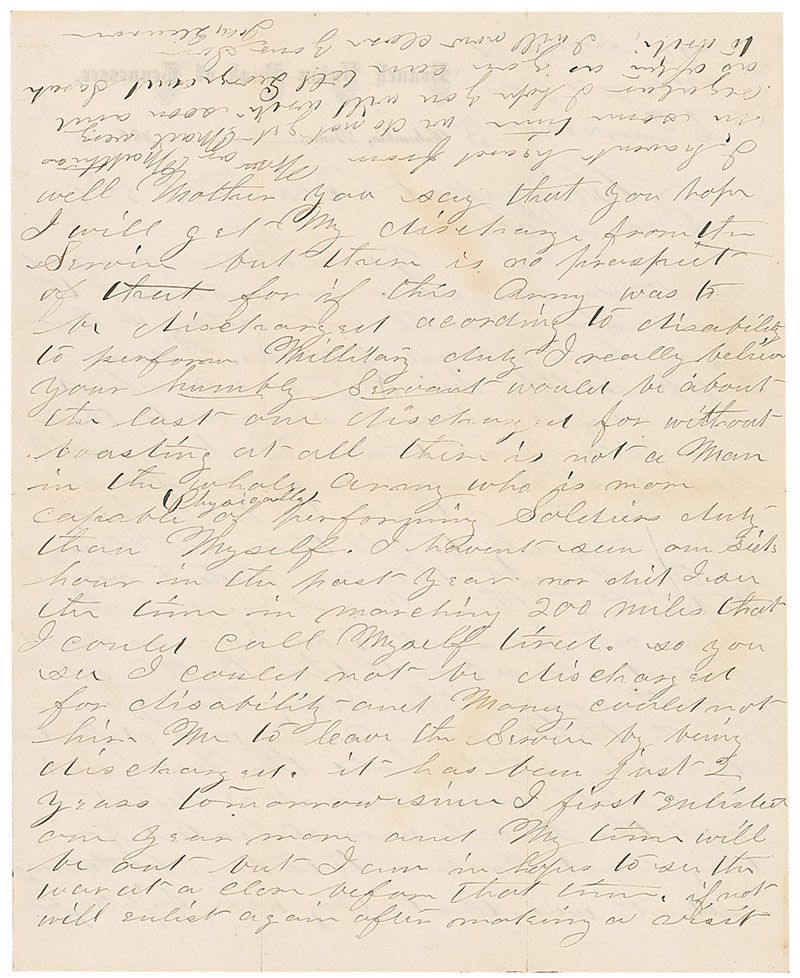 well Mother you say that you hope
I will get My discharge from the
Service but there is no prospect
of that for if this Army was to
be discharged acording to disability
to perform Millitary duty I really believe
your humbly Servant would be about
the last one discharged for without
boasting at all there is not a Man
in the whole army who is more
Physically
capable of performing Soldiers duty
than Myself. I havent seen one Sick
hour in the past year nor did I see
the time in marching 200 miles that
I could call Myself tired. so you
see I could not be discharged
for disability and Money could not
hire Me to leave the Service by being
discharged. it has been just 2
years tomorrow since I first enlisted
one year more and My time will
be out but I am in hopes to see the
war at a close before that time. if not
will enlist again after making a visit
I havent heard from Wm or Matthias
in some time we do not get Mail very
regular I hope you will write soon and
as often as you can tell George and Sarah
to write, I will now close Your Son